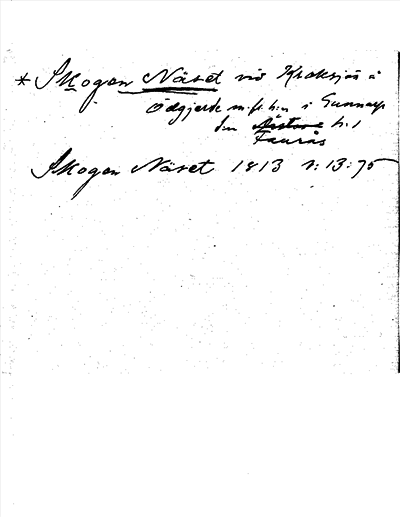 * Skogen Näset vid Kroksjön å
Ödgjerde m.fl. h:n i Gunnarp
h:d
Faurås
Skogen Näset 1813 1:13:75